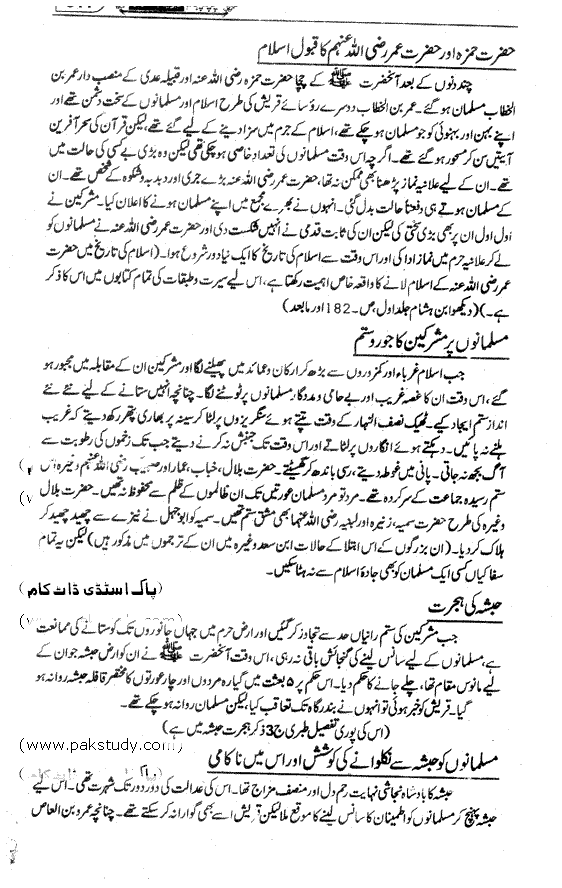 حضرت حمزہ اور حضرت عمر رضی اللہ عنہم کا قبول اسلام
چند دنوں کے بعد آنحضرت ﷺ کے چچا حضرت حمزہ رضی اللہ عنہ اور قبیلہ عدی کے منصب دار عمر بن
الخطاب مسلمان ہو گئے۔ عمر بن الخطاب دوسرے رؤسائے قریش کی طرح اسلام اور مسلمانوں کے سخت دشمن تھے اور
اپنے بہن اور بہنوئی کو جو مسلمان ہو چکے تھے، اسلام کے جرم میں سزا دینے کے لیے گئے تھے، لیکن قرآن کی سحر آفرین
آیتیں سن کر مسحور ہو گئے تھے۔ اگرچہ اس وقت مسلمانوں کی تعداد خاصی ہو چکی تھی لیکن وہ بڑی بے کسی کی حالت میں
تھے۔ ان کے لیے علانیہ نماز پڑھنا بھی ممکن نہ تھا، حضرت عمر رضی اللہ عنہ بڑے جری اور دبدبہ و شکوہ کے شخص تھے۔ ان
کے مسلمان ہوتے ہی دفعتاً حالت بدل گئی۔ انہوں نے بھرے مجمع میں اپنے مسلمان ہونے کا اعلان کیا۔ مشرکین نے
اول اول ان پر بھی بڑی سختی کی لیکن ان کی ثابت قدمی نے انہیں شکست دی اور حضرت عمر رضی اللہ عنہ نے مسلمانوں کو
لے کر علانیہ حرم میں نماز ادا کی اور اس وقت سے اسلام کی تاریخ کا ایک نیا دور شروع ہوا۔ (اسلام کی تاریخ میں حضرت
عمر رضی اللہ عنہ کے اسلام لانے کا واقعہ خاص اہمیت رکھتا ہے، اس لیے سیرت و طبقات کی تمام کتابوں میں اس کا ذکر
ہے۔) (دیکھو ابن ہشام جلد اول، ص۔182 اور مابعد)
مسلمانوں پر مشرکین کا جور و ستم
جب اسلام غرباء اور کمزوروں سے بڑھ کر ارکان و عمائد میں پھیلنے لگا اور مشرکین ان کے مقابلہ میں مجبور ہو
گئے، اس وقت ان کا غصہ غریب اور بے حامی و مددگار مسلمانوں پر ٹوٹنے لگا۔ چنانچہ انہیں ستانے کے لیے نئے نئے
انداز ستم ایجاد کیے۔ ٹھیک نصف النہار کے وقت تپتے ہوئے سنگریزوں پر لٹا کر سینہ پر بھاری پتھر رکھ دیتے کہ غریب
ہلنے نہ پائیں۔ دہکتے ہوئے انگاروں پر لٹاتے اور اس وقت تک جنبش نہ کرنے دیتے جب تک زخموں کی رطوبت سے
آگ بجھ نہ جاتی۔ پانی میں غوطہ دیتے، رسی باندھ کر گھسیٹتے۔ حضرت بلال، خباب، عمار اور صہیب رضی اللہ عنہم وغیرہ اس
ستم رسیدہ جماعت کے سرکردہ تھے۔ مرد تو مرد مسلمان عورتیں تک ان ظالموں کے ظلم سے محفوظ نہ تھیں۔ حضرت بلال
وغیرہ کی طرح حضرت سمیہ، زنیرہ اور لبینہ رضی اللہ عنہما بھی مشق ستم تھیں۔ سمیہ کو ابوجہل نے نیزے سے چھید چھید کر
ہلاک کر دیا۔ (ان بزرگوں کے اس ابتلا کے حالات ابن سعد وغیرہ میں ان کے ترجموں میں مذکور ہیں) لیکن یہ تمام
سفاکیاں کسی ایک مسلمان کو بھی جادۂ اسلام سے نہ ہٹا سکیں۔
(پاک اسٹڈی ڈاٹ کام)
حبشہ کی ہجرت
جب مشرکین کی ستم رانیاں حد سے تجاوز کر گئیں اور ارض حرم میں جہاں جانوروں تک کو ستانے کی ممانعت
ہے، مسلمانوں کے لیے سانس لینے کی گنجائش باقی نہ رہی، اس وقت آنحضرت ﷺ نے ان کو ارض حبشہ جو ان کے
لیے مانوس مقام تھا، چلے جانے کا حکم دیا۔ اس حکم پر ۵ بعثت میں گیارہ مردوں اور چار عورتوں کا مختصر قافلہ حبشہ روانہ ہو
گیا۔ قریش کو خبر ہوئی تو انہوں نے بندرگاہ تک تعاقب کیا، لیکن مسلمان روانہ ہو چکے تھے۔
(اس کی پوری تفصیل طبری ج3 ذکر ہجرت حبشہ میں ہے)
(www.pakstudy.com)
مسلمانوں کو حبشہ سے نکلوانے کی کوشش اور اس میں ناکامی
حبشہ کا بادشاہ نجاشی نہایت رحم دل اور منصف مزاج تھا۔ اس کی عدالت کی دور دور تک شہرت تھی۔ اس لیے
حبشہ پہنچ کر مسلمانوں کو اطمینان کا سانس لینے کا موقع ملا لیکن قریش اسے بھی گوارا نہ کر سکتے تھے۔ چنانچہ عمرو بن العاص